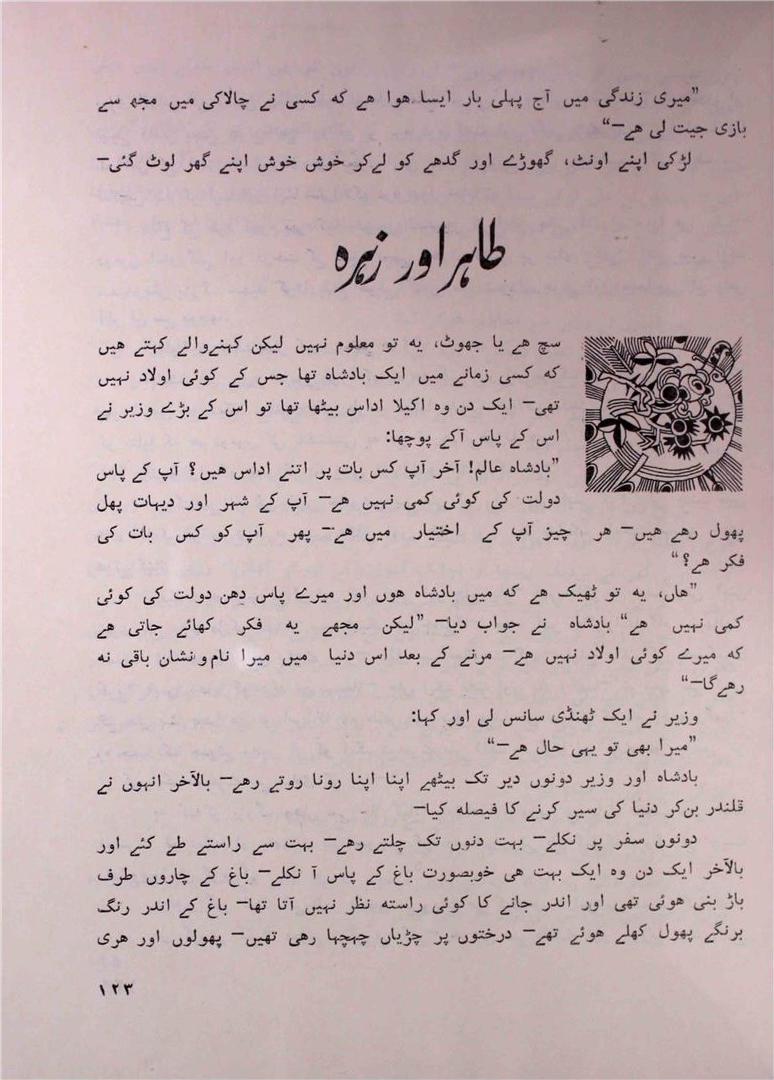 ”میری زندگی میں آج پہلی بار ایسا ہوا ہے کہ کسی نے چالاکی میں مجھ سے
بازی جیت لی ہے—“
لڑکی اپنے اونٹ، گھوڑے اور گدھے کو لےکر خوش خوش اپنے گھر لوٹ گئی—
طاہر اور زہرہ
سچ ہے یا جھوٹ، یہ تو معلوم نہیں لیکن کہنےوالے کہتے ہیں
کہ کسی زمانے میں ایک بادشاہ تھا جس کے کوئی اولاد نہیں
تھی— ایک دن وہ اکیلا اداس بیٹھا تھا تو اس کے بڑے وزیر نے
اس کے پاس آکے پوچھا:
”بادشاہ عالم! آخر آپ کس بات پر اتنے اداس ہیں؟ آپ کے پاس
دولت کی کوئی کمی نہیں ہے— آپ کے شہر اور دیہات پھل
پھول رہے ہیں— ہر چیز آپ کے اختیار میں ہے— پھر آپ کو کس بات کی
فکر ہے؟“
”ہاں، یہ تو ٹھیک ہے کہ میں بادشاہ ہوں اور میرے پاس دھن دولت کی کوئی
کمی نہیں ہے“ بادشاہ نے جواب دیا— ”لیکن مجھے یہ فکر کھائے جاتی ہے
کہ میرے کوئی اولاد نہیں ہے— مرنے کے بعد اس دنیا میں میرا نام و نشان باقی نہ
رہےگا—“
وزیر نے ایک ٹھنڈی سانس لی اور کہا:
”میرا بھی تو یہی حال ہے—“
بادشاہ اور وزیر دونوں دیر تک بیٹھے اپنا اپنا رونا روتے رہے— بالآخر انہوں نے
قلندر بن‌کر دنیا کی سیر کرنے کا فیصلہ کیا—
دونوں سفر پر نکلے— بہت دنوں تک چلتے رہے— بہت سے راستے طے کئے اور
بالآخر ایک دن وہ ایک بہت ہی خوبصورت باغ کے پاس آ نکلے— باغ کے چاروں طرف
باڑ بنی ہوئی تھی اور اندر جانے کا کوئی راستہ نظر نہیں آتا تھا— باغ کے اندر رنگ
برنگے پھول کھلے ہوئے تھے— درختوں پر چڑیاں چہچہا رہی تھیں— پھولوں اور ہری
۱۲۳